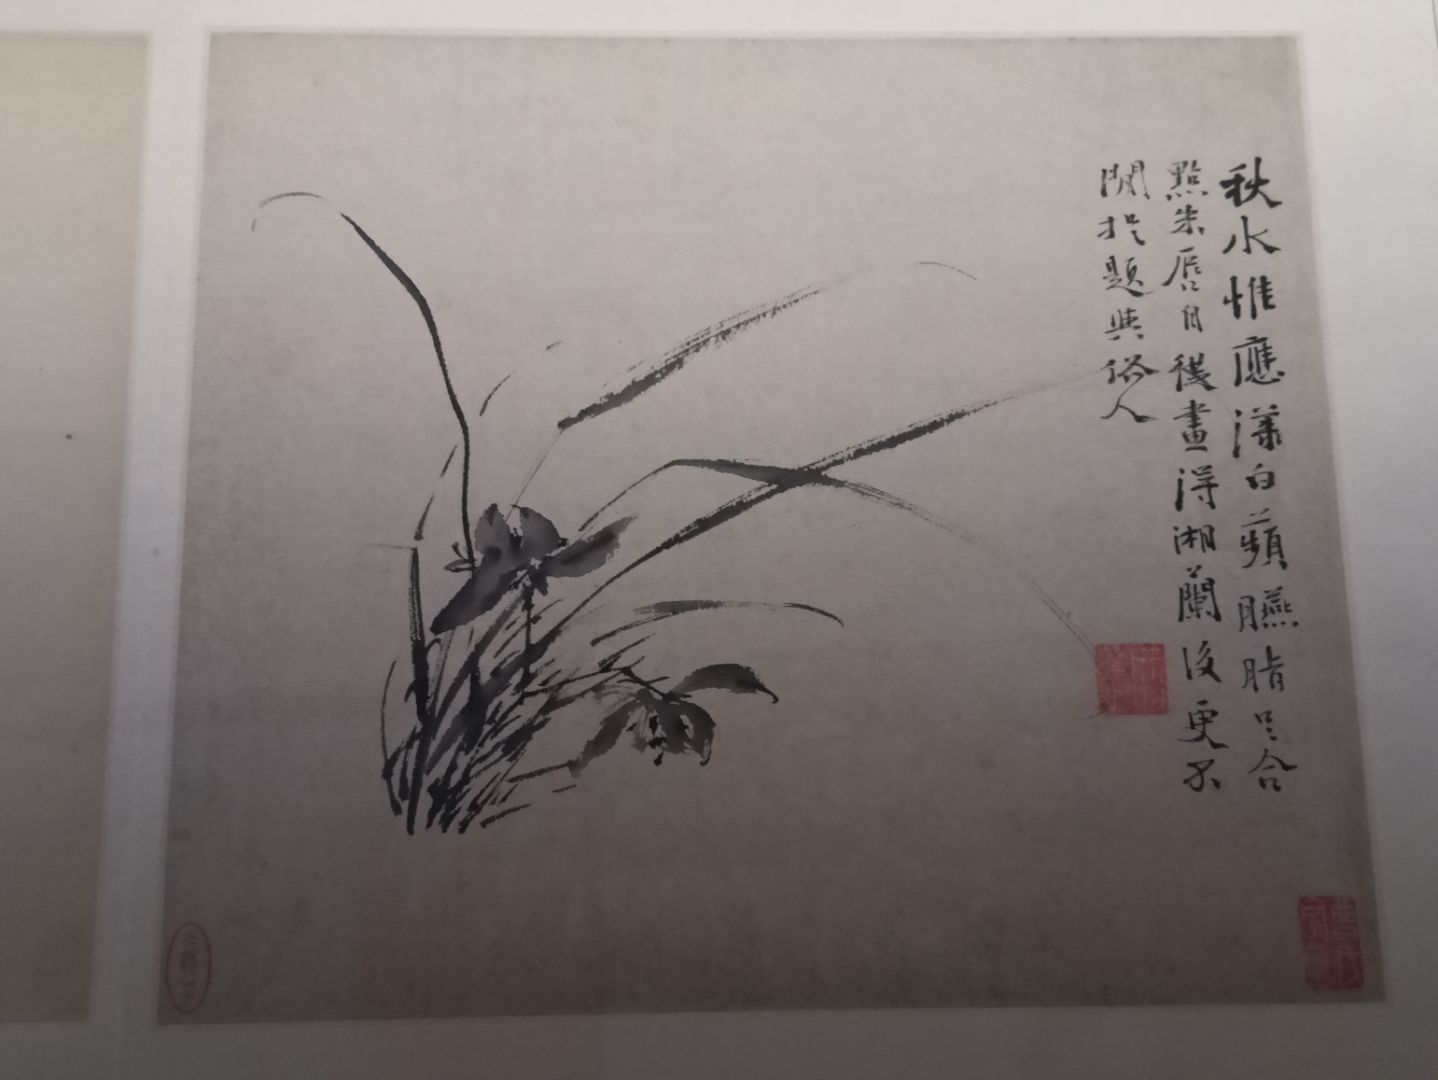 秋水惟應漾白蘋臙脂只合
點朱唇自從畫得湘蘭後更不
閒題與俗人